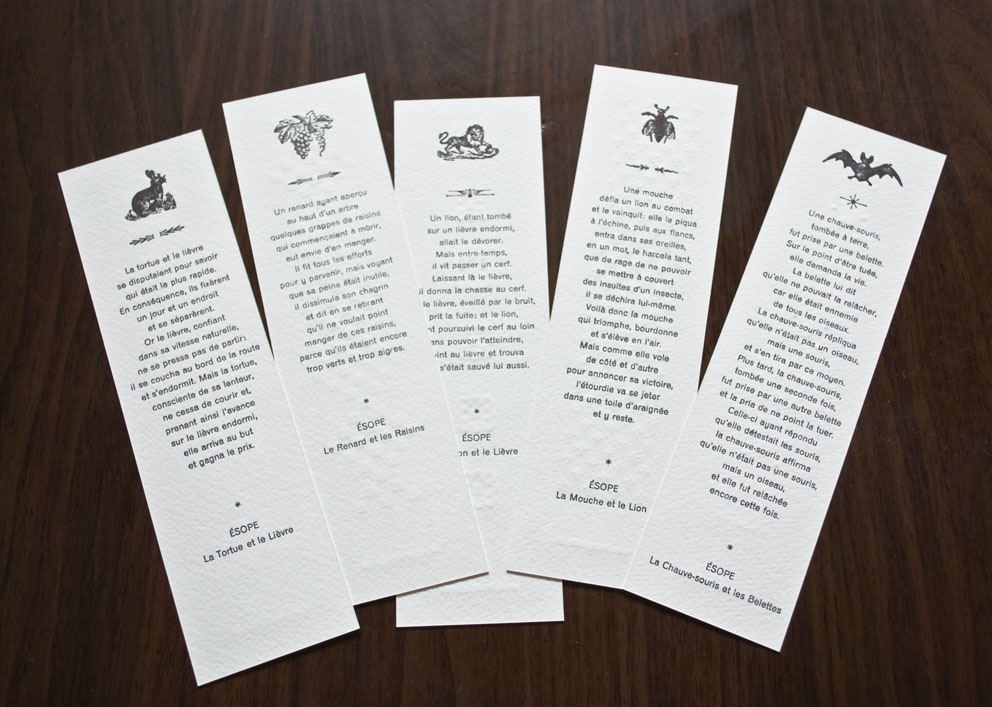 La tortue et le lièvre
se disputaient pour savoir
qui était le plus rapide.
En conséquence, ils fixèrent
un jour et un endroit
et se séparèrent.
Or le lièvre, confiant
dans sa vitesse naturelle,
ne se pressa pas de partir;
il se coucha au bord de la route
et s'endormit. Mais la tortue,
consciente de sa lenteur,
ne cessa de courir et,
prenant ainsi l'avance
sur le lièvre endormi,
elle arriva au but
et gagna le prix.
*
ÉSOPE
La Tortue et le Lièvre
Un renard ayant aperçu
au haut d'un arbre
quelques grappes de raisins
qui commençaient à mûrir,
eut envie d'en manger.
Il fit tous les efforts
pour y parvenir, mais voyant
que sa peine était inutile,
il dissimula son chagrin
et dit en se retirant
qu'il ne voulait point
manger de ces raisins,
parce qu'ils étaient encore
trop verts et trop aigres.
*
ÉSOPE
Le Renard et les Raisins
Un lion, étant tombé
sur un lièvre endormi,
allait le dévorer.
Mais entre-temps,
il vit passer un cerf.
Laissant là le lièvre,
il donna la chasse au cerf.
le lièvre, éveillé par le bruit,
prit la fuite; et le lion,
poursuivi le cerf au loin
pouvoir l'atteindre,
au lièvre et trouva
s'était sauvé lui aussi.
*
ÉSOPE
et le Lièvre
Une mouche
défia un lion au combat
et le vainquit: elle le piqua
à l'échine, puis aux flancs,
entra dans ses oreilles,
en un mot, le harcela tant,
que de rage de ne pouvoir
se mettre à couvert
des insultes d'un insecte,
il se déchira lui-même.
Voilà donc la mouche
qui triomphe, bourdonne
et s'élève en l'air.
Mais comme elle vole
de côté et d'autre
pour annoncer sa victoire,
l'étourdie va se jeter
dans une toile d'araignée
et y reste.
*
ÉSOPE
La Mouche et le Lion
Une chauve-souris,
tombée à terre,
fut prise par une belette.
Sur le point d'être tuée,
elle demanda la vie.
La belette lui dit
qu'elle ne pouvait la relâcher,
car elle était ennemie
de tous les oiseaux.
La chauve-souris répliqua
qu'elle n'était pas un oiseau,
mais une souris,
et s'en tira par ce moyen.
Plus tard, la chauve-souris,
tombée une seconde fois,
fut prise par une autre belette
et la pria de ne point la tuer.
Celle-ci ayant répondu
qu'elle détestait les souris,
la chauve-souris affirma
qu'elle n'était pas une souris,
mais un oiseau,
et elle fut relâchée
encore cette fois.
*
ÉSOPE
La Chauve-souris et les Belettes